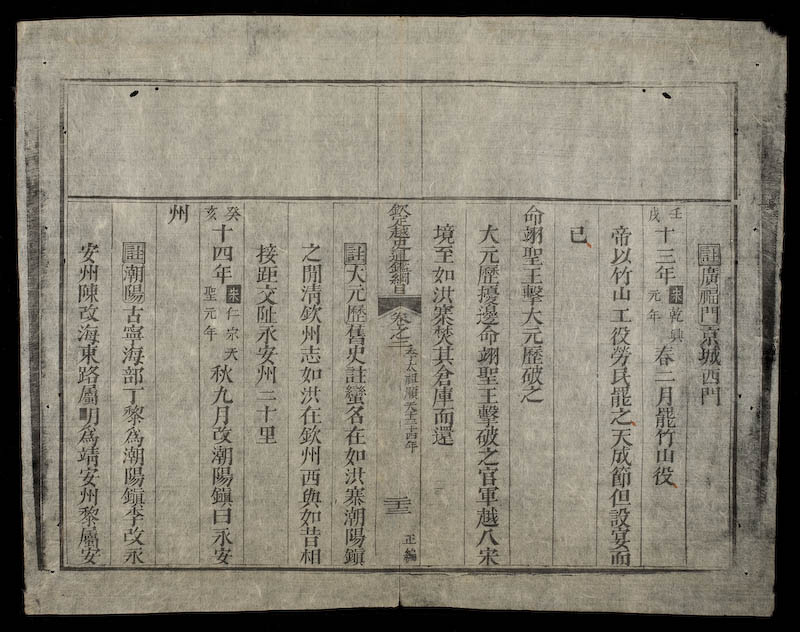 註廣福門京城西門
壬戌十三年宋乾興元年春二月罷竹山役
帝以竹山工役勞民罷之天成節但設宴而
已
命翊聖王擊大元歷破之
大元歷擾邊命翊聖王擊破之官軍越入宋
境至如洪寨焚其倉庫而還
欽定越史通鑑綱目 卷之二 李太祖順天十三十四年 二十三 正編
註大元歷舊史註蠻名在如洪寨潮陽鎮
之閒清欽州志如洪在欽州西與如昔相
接距交阯永安州二十里
癸亥十四年宋仁宗天聖元年秋九月改潮陽鎮曰永安
州
註潮陽古寧海部丁黎爲潮陽鎮李改永
安州陳改海東路屬明爲靖安州黎屬安